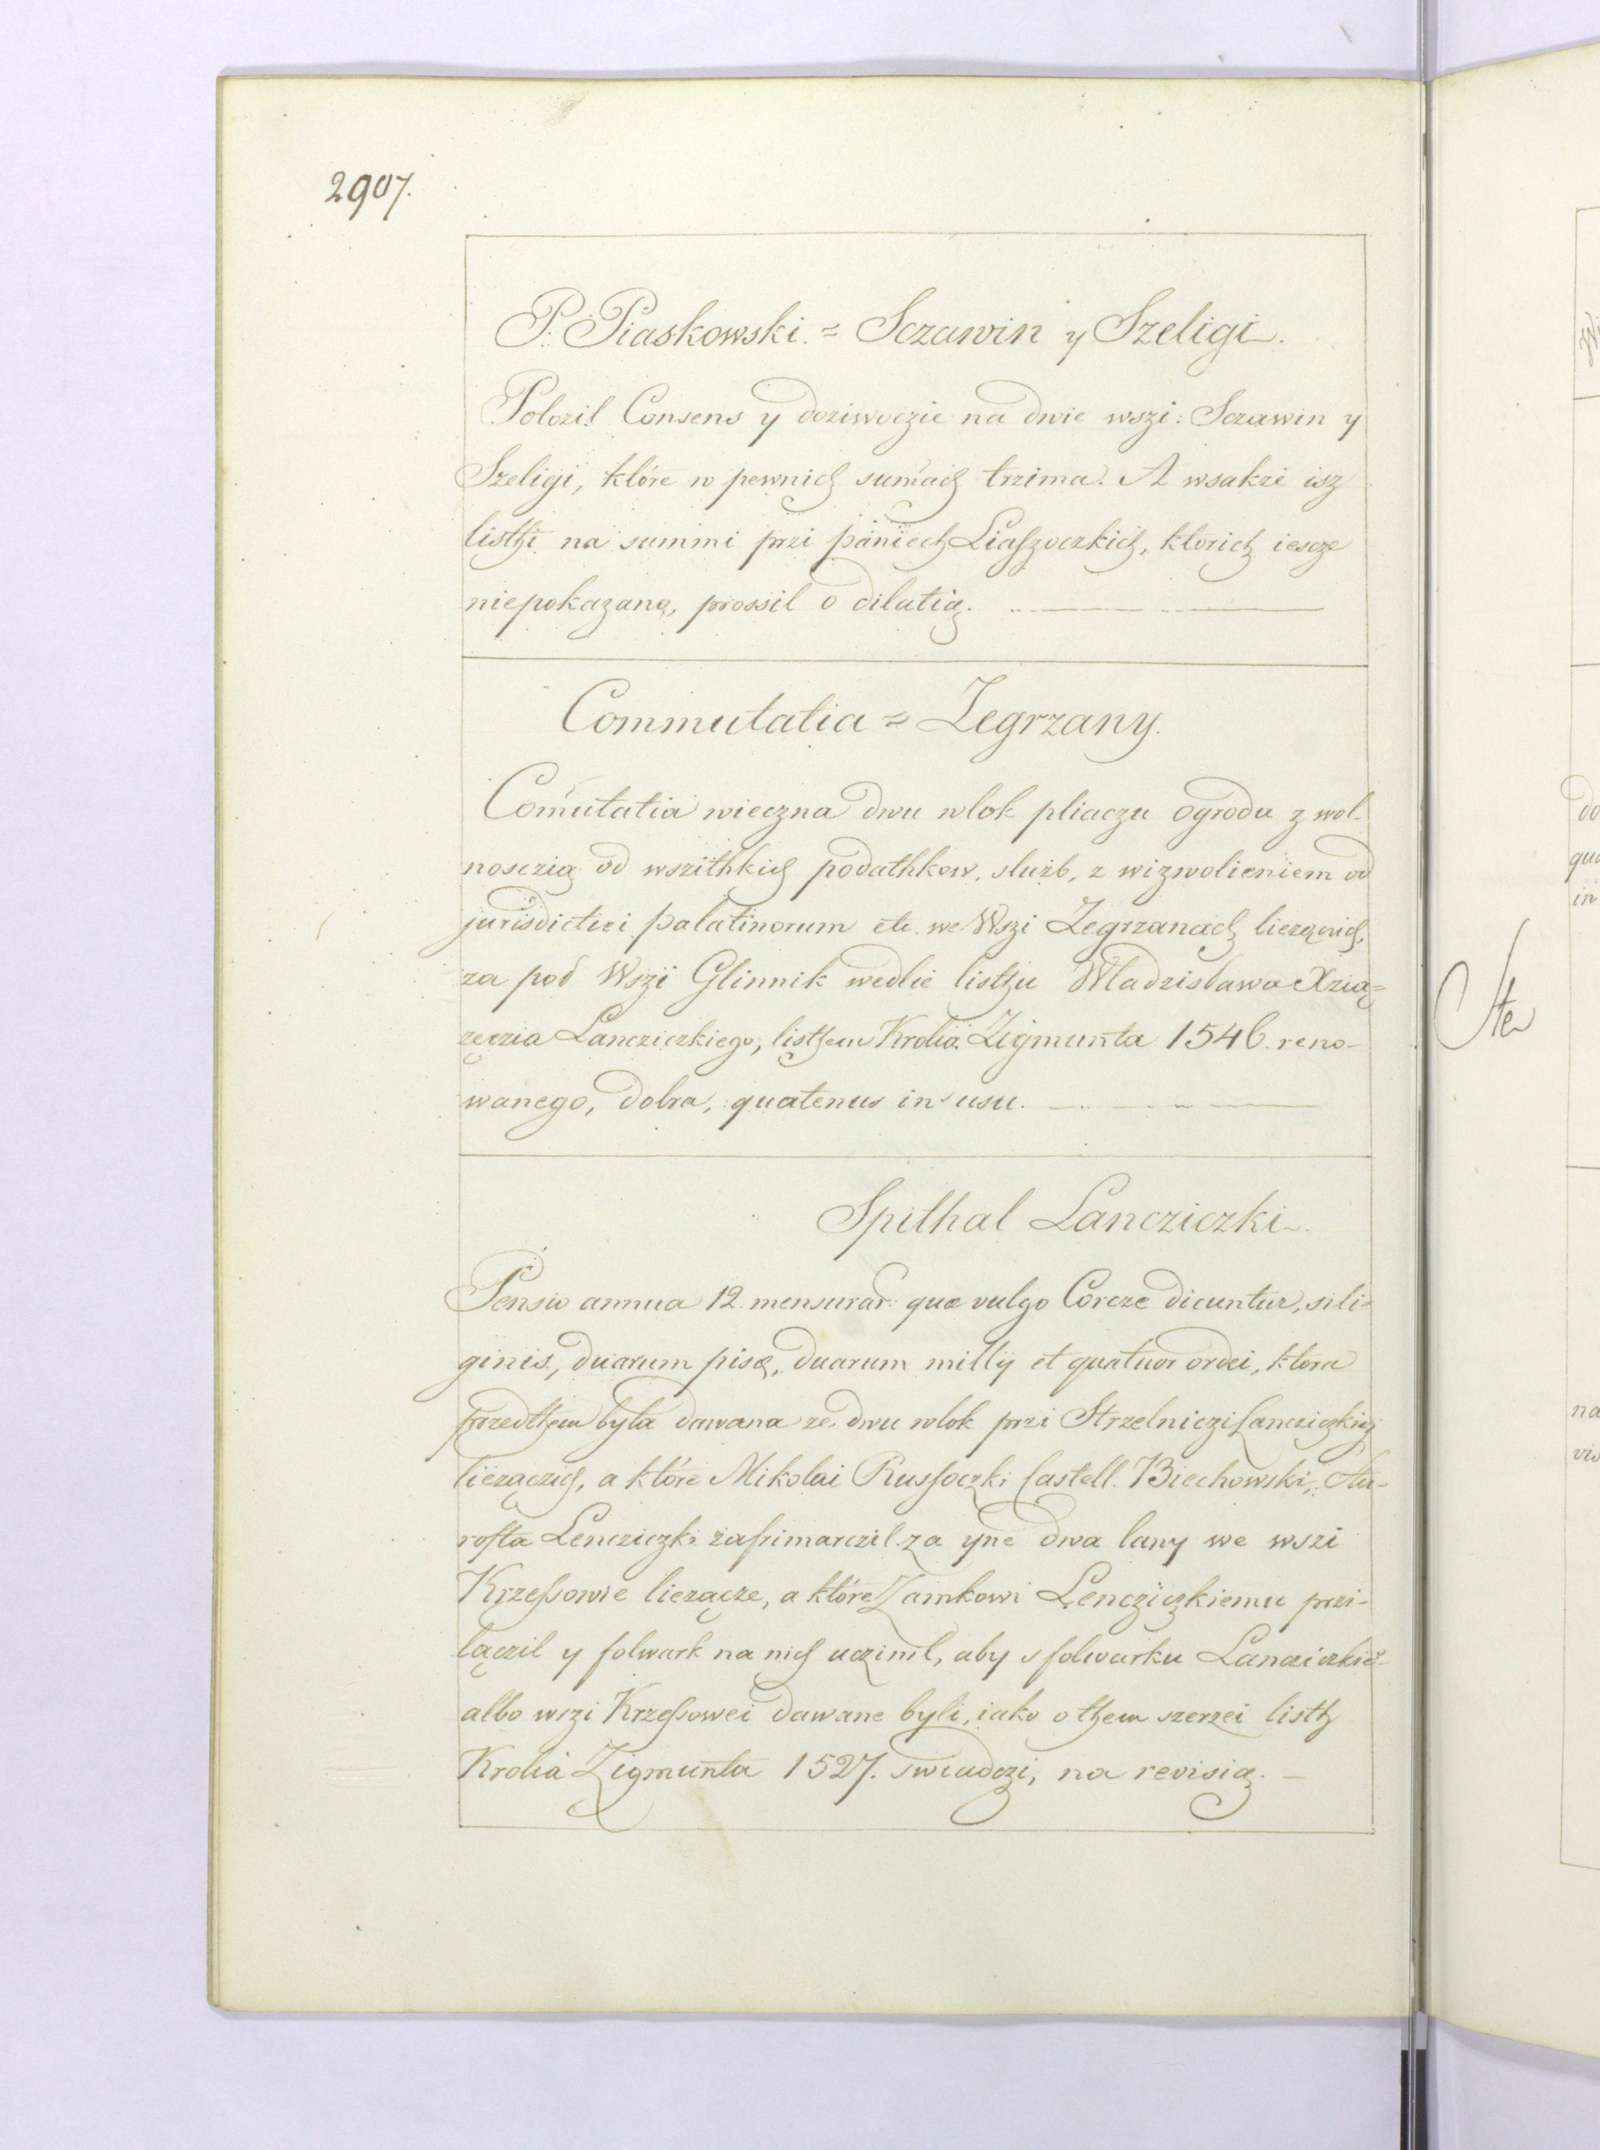 2907.
P. Piaskowski. = Sczawin y Szeligi.
Polozil Consens y doziwoczie na dwie wszi: Sczawin y
Szeligi, które w pewnich sumach trzima. A wsakze isz
listhi na summi przi paniech Liaszoczkich, ktorich iescze
niepokazano, prossil o dilatią.
Commutatia = Zegrzany.
Comutatia wieczna dwu wlok pliaczu ogrodu z wol-
nosczią od wszithkich podathkow, służb, z wizwolieniem od
jurisdictiei palatinorum etc. we Wszi Zegrzanach liezączich,
za pod Wszi Glinnik wedlie listhu Wladzislawa Xzią=
zęczia Lancziczkiego, listhem Krolia Zigmunta 1546. reno-
wanego, dobra, quatenus in usu.
Spithal Lancziczki.
Pensio annua 12. mensurar: quæ vulgo Corcze dicuntur, sili-
ginis, duarum pisę, duarum millij et quatuor ordei, ktora
przedthem była dawana ze dwu wlok przi Strzelniczi Lancziczkiej
liezączich, a które Mikolai Russoczki Castell. Biechowski, Sta-
rosta Lencziczki zafrimarczil za yne dwa lany we wszi
Krzessowie liezącze, a które Zamkowi Lencziczkiemu przi-
łączil y folwark na nich uczinil, aby s folwarku Lancziczkie-
albo wszi Krzessowei dawane byli, iako o them szerzei listh
Krolia Zigmunta 1527. swiadczi, na revisią.
do
in
na
vis